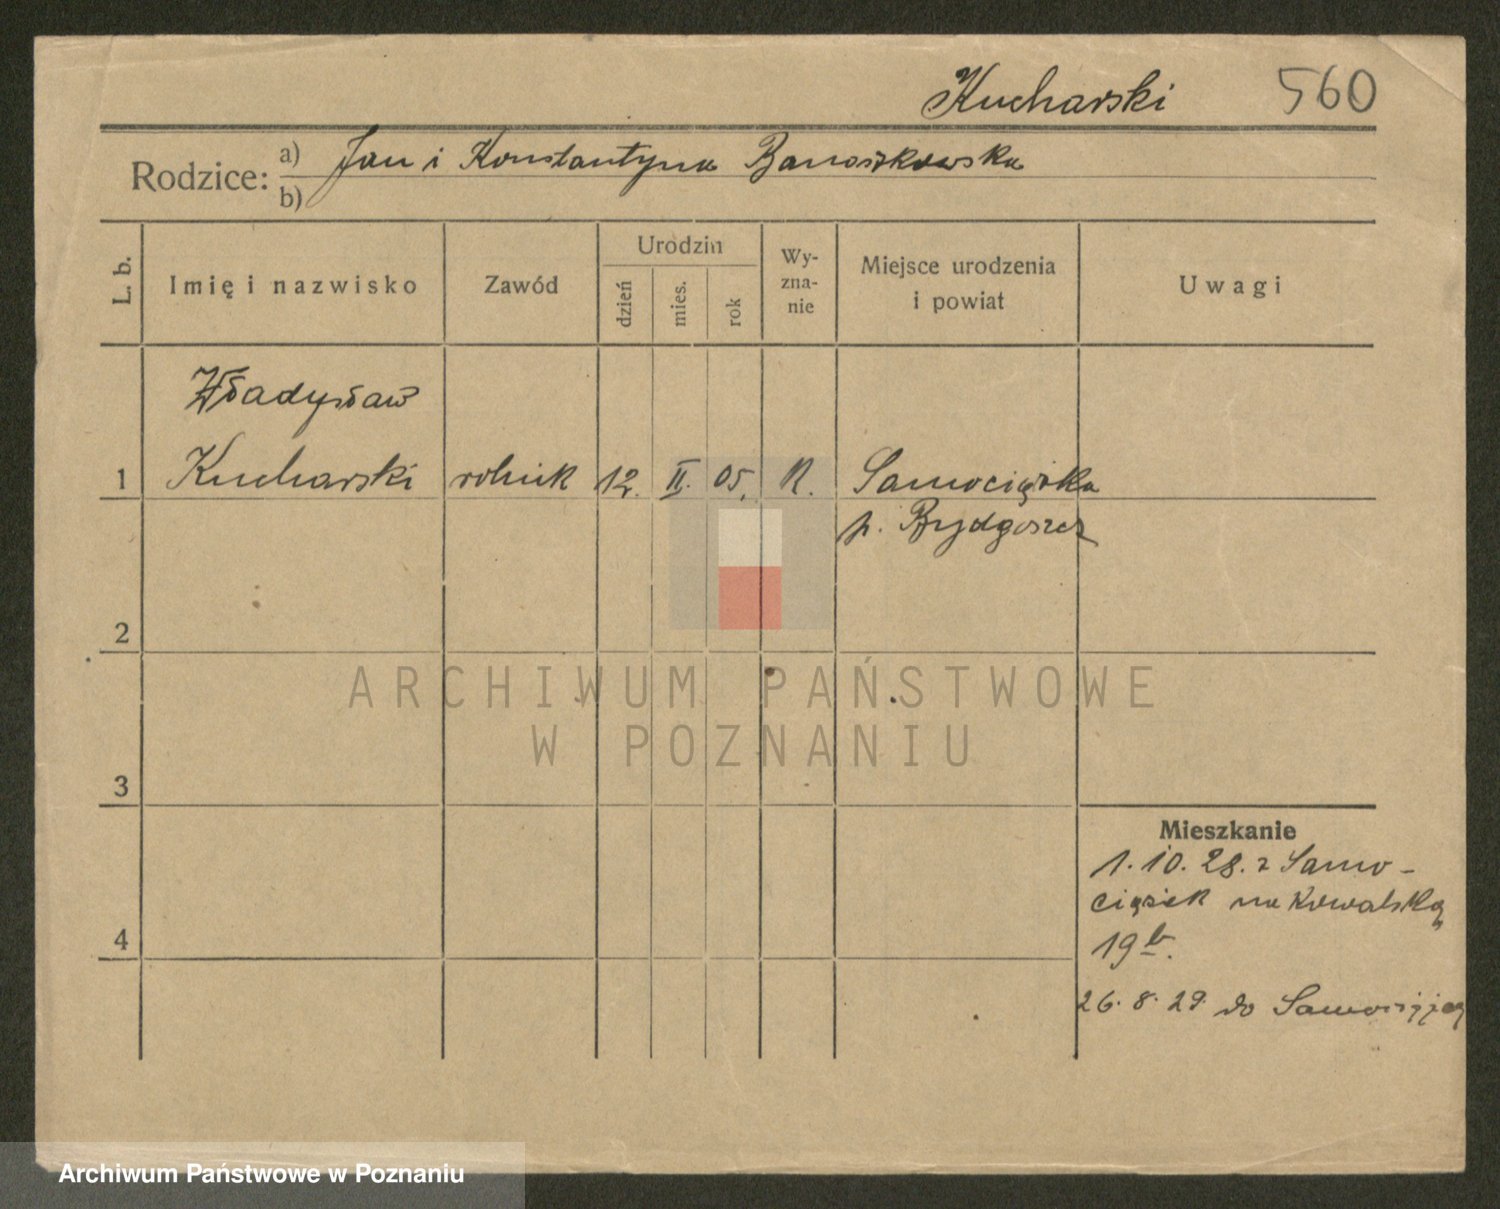 Kucharski 560
Rodzice: a) Jan i Konstantyna
b)
L. b.
Imię i nazwisko
Zawód
Urodzin
dzień
mies.
rok
Wy-
zna-
nie
Miejsce urodzenia
i powiat
Uwagi
Władysław
1 Kucharski rolnik 12. II. 05. R.
p. Bydgoszcz
2
ARCHIWUM PAŃSTWOWE
W POZNANIU
3
Mieszkanie
1.10.28. z Samo-
na Kowalską
4
19 b.
26.8.29 do
Archiwum Państwowe w Poznaniu